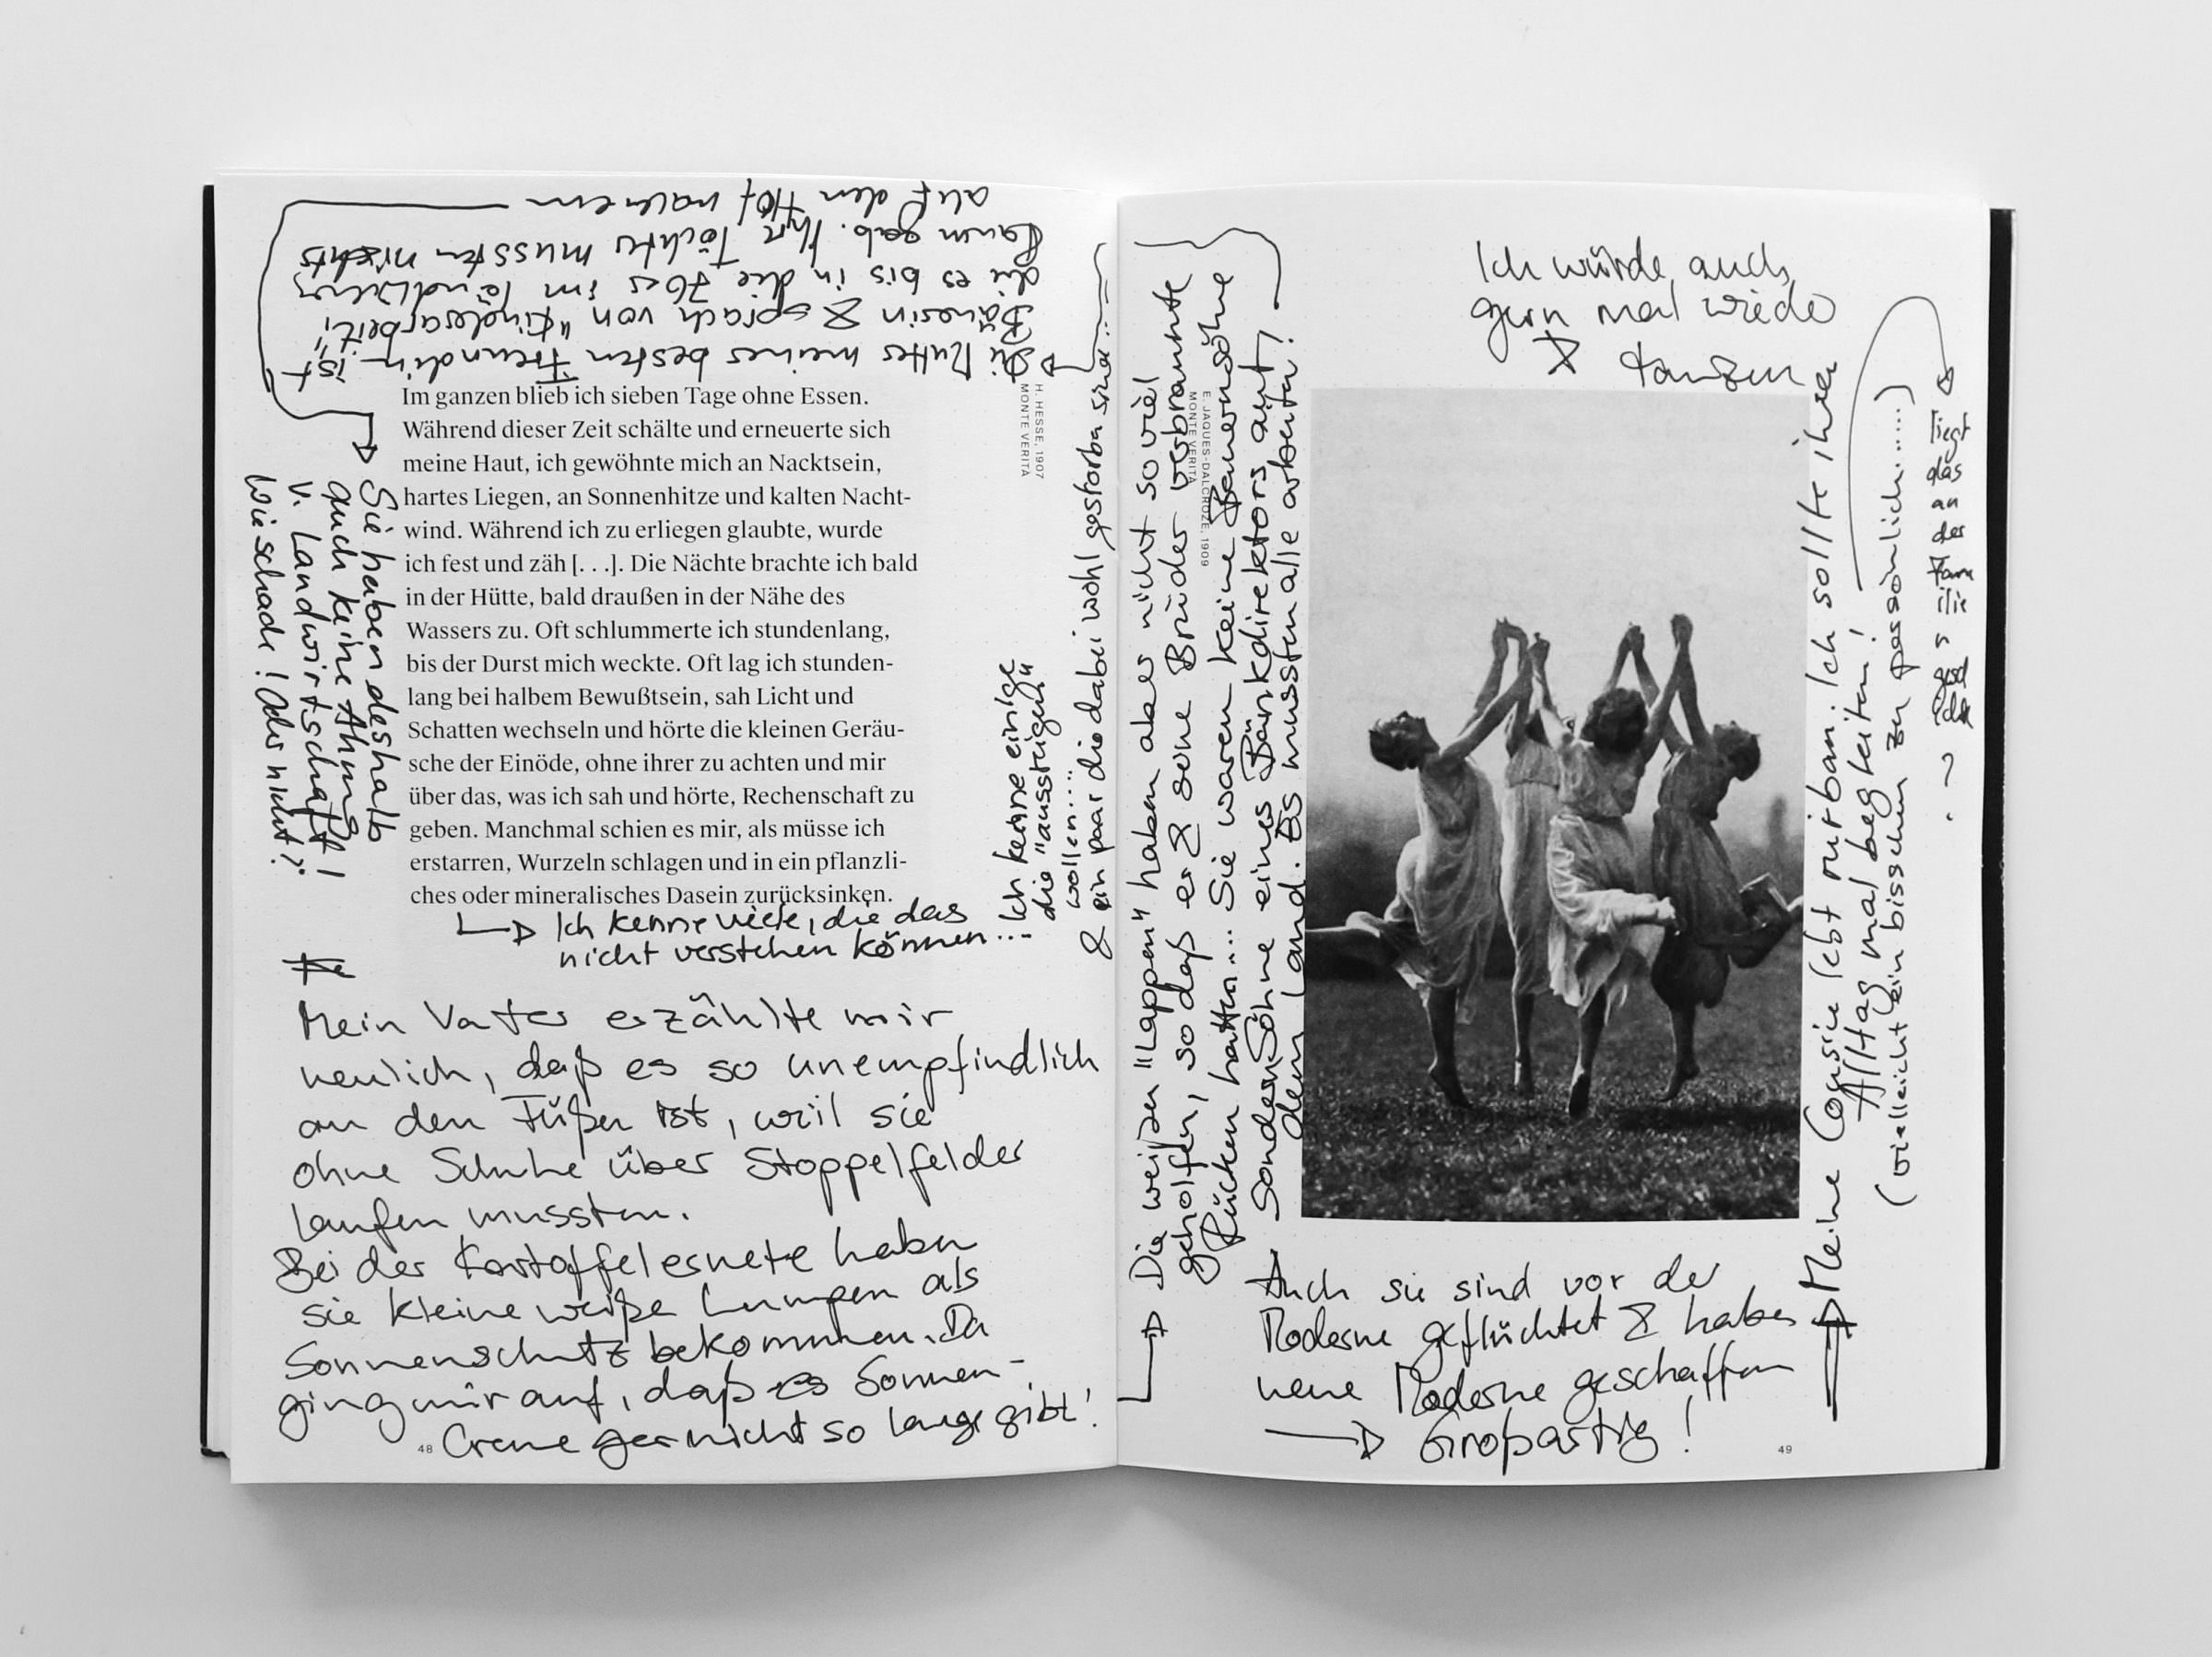 Im ganzen blieb ich sieben Tage ohne Essen.
Während dieser Zeit schälte und erneuerte sich
meine Haut, ich gewöhnte mich an Nacktsein,
hartes Liegen, an Sonnenhitze und kalten Nacht-
wind. Während ich zu erliegen glaubte, wurde
ich fest und zäh [. . .]. Die Nächte brachte ich bald
in der Hütte, bald draußen in der Nähe des
Wassers zu. Oft schlummerte ich stundenlang,
bis der Durst mich weckte. Oft lag ich stunden-
lang bei halbem Bewußtsein, sah Licht und
Schatten wechseln und hörte die kleinen Geräu-
sche der Einöde, ohne ihrer zu achten und mir
über das, was ich sah und hörte, Rechenschaft zu
geben. Manchmal schien es mir, als müsse ich
erstarren, Wurzeln schlagen und in ein pflanzli-
ches oder mineralisches Dasein zurücksinken.
H. HESSE, 1907
MONTE VERITÀ
Ich kenne viele, die das
nicht verstehen können...
Ich kenne einige
die "aussteigen"
wollen....
& ein paar die dabei wohl gestorben sind...
Mein Vater erzählte mir
neulich, daß es so unempfindlich
an den Füßen ist, weil sie
ohne Schuhe über Stoppelfelder
laufen mussten.
Bei der Kartoffelernete haben
sie kleine weiße Lumpen als
Sonnenschutz bekommen. Da
ging mir auf, daß es Sonnen-
Creme gar nicht so lange gibt!
48
Die Mutter meiner besten Freundin ist
Bäuerin & sprach von "Kinderarbeit",
die es bis in die 70er im
kaum gab. Ihre Töchter mussten nichts
auf den Hof machen
Sie haben deshalb
auch keine Ahnung
v. Landwirtschaft!
Wie schade! Oder nicht?
Die weißen "Lappen" haben aber nicht so viel
geholfen, so daß er & seine Brüder verbrannte
Rücken hatten... Sie waren keine Bauernsöhne
Sondern Söhne eines Bankdirektors auf
dem Land. Es mussten alle arbeiten!
E. JAQUES-DALCROZE, 1909
MONTE VERITÀ
Ich würde auch
gern mal wieder
tanzen
Auch sie sind vor der
Moderne geflüchtet & haben
neue Moderne geschaffen
Großartig!
49
Meine Cousie lebt offenbar. Ich sollte ihren
Alltag mal begleiten!
(vielleicht ein bisschen zu persönlich.....)
liegt
das
an
der
Fam
ilie
n
gesch
ichte
?